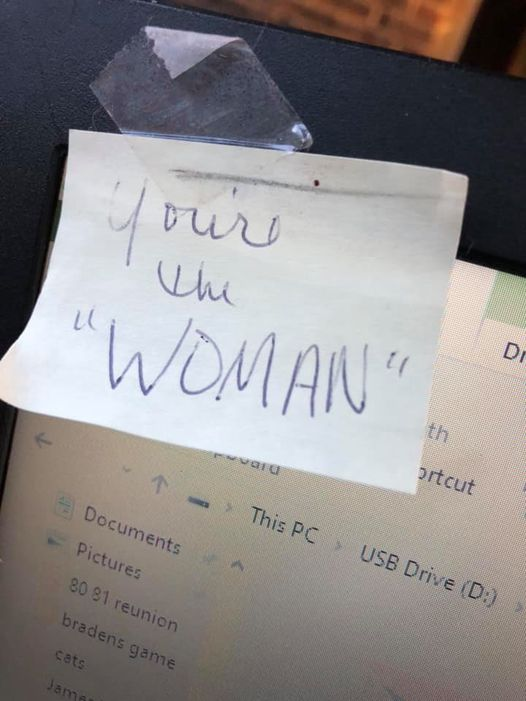 you're
the
"WOMAN"
Dr
th
ortcut
This PC > USB Drive (D:) >
Documents
Pictures
80 81 reunion
bradens game
cats